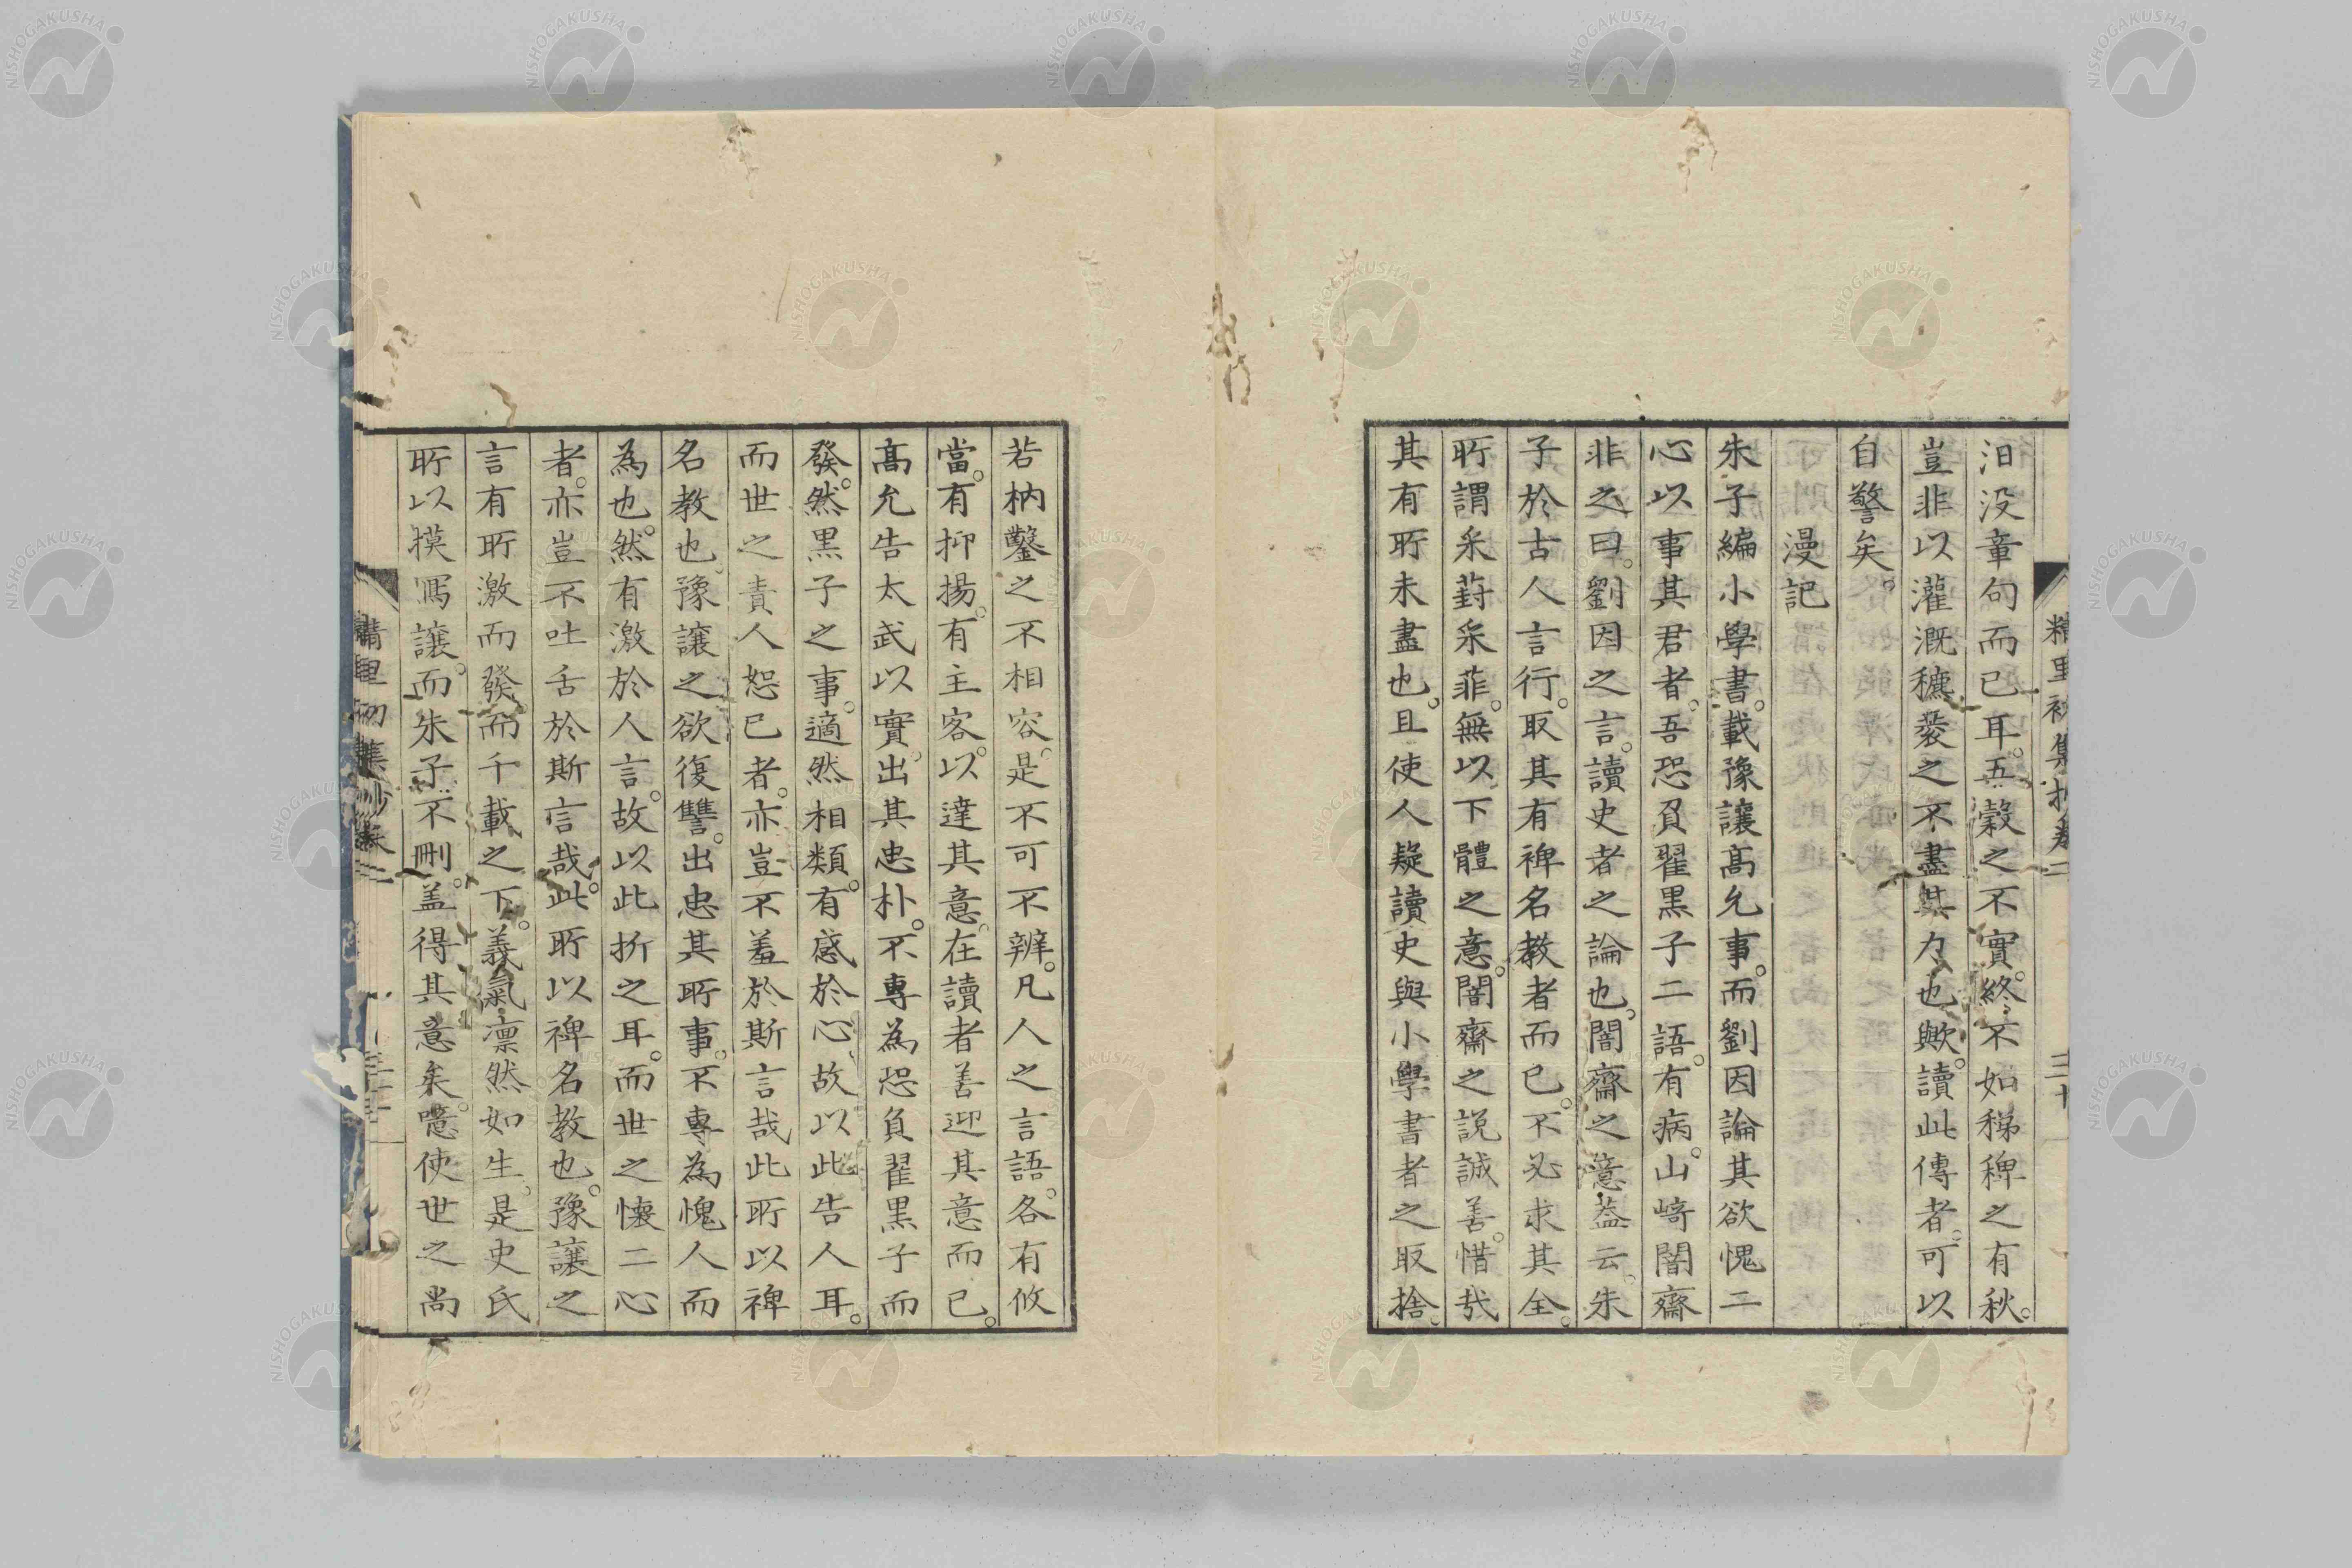 精里初集抄卷二
汨没章句而已耳。五穀之不實。終不如稊稗之有秋。
豈非以灌漑穮蔉之不盡其力也歟。讀此傳者。可以
自警矣。
漫記
朱子編小學書。載豫讓高允事。而劉因論其欲愧二
心以事其君者。吾恐負翟黒子二語。有病。山﨑闇齋
非之曰。劉因之言。讀史者之論也。闇齋之意蓋云。朱
子於古人言行。取其有裨名教者而已。不必求其全。
所謂采葑采菲。無以下體之意。闇齋之説誠善。惜哉
其有所未盡也。且使人疑讀史與小學書者之取捨。
若枘鑿之不相容。是不可不辨。凡人之言語。各有攸
當。有抑揚。有主客。以達其意。在讀者善迎其意而已。
高允告太武以實。出其忠朴。不專為恐負翟黒子而
發。然黒子之事。適然相類。有感於心。故以此告人耳。
而世之責人恕已者。亦豈不羞於斯言哉此所以裨
名教也。豫讓之欲復讐。出忠其所事。不專為愧人而
為也。然有激於人言。故以此折之耳。而世之懐二心
者。亦豈不吐舌於斯言哉。此所以裨名教也。豫讓之
言有所激而發。而千載之下。義氣凛然如生。是史氏
所以摸寫讓。而朱子不刪。盖得其意矣。噫使世之尚
精里初集抄卷二